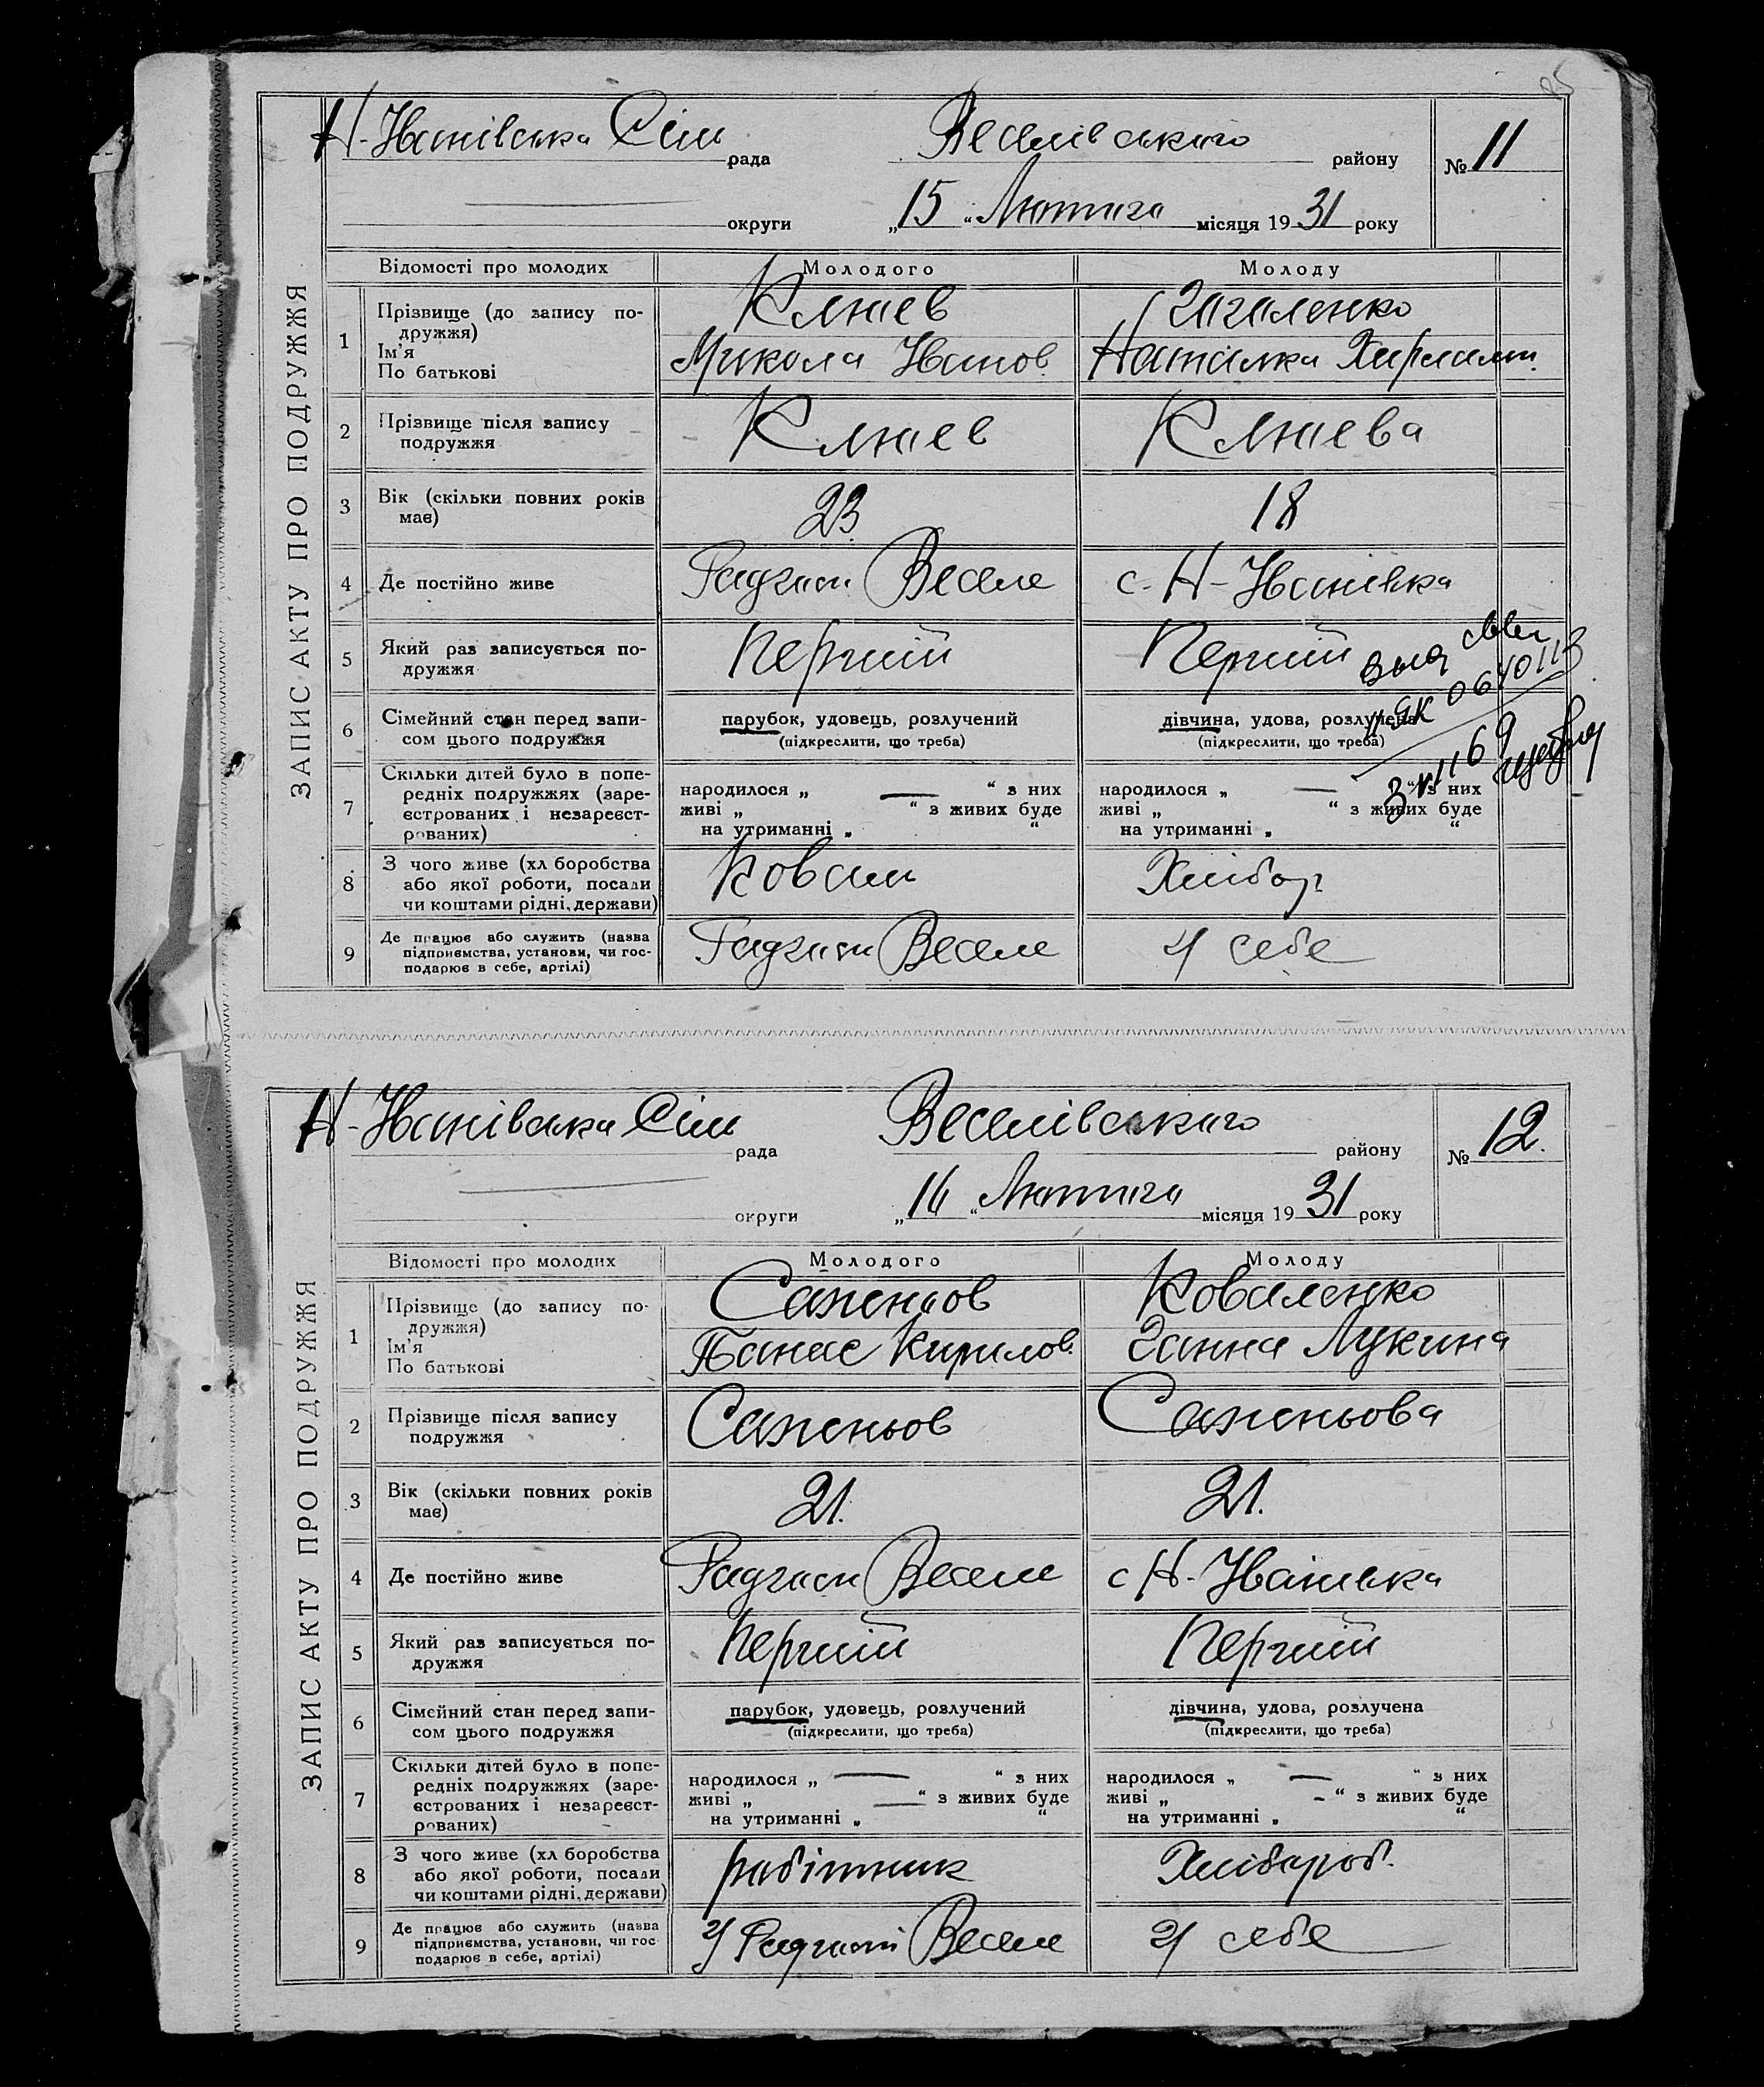 ЗАПИС АКТУ ПРО ПОДРУЖЖЯ
Н-Іванівська Сіль рада Веселівського району № 11
округи „15“ Лютого місяця 1931 року
Відомості про молодих Молодого Молоду
1 Прізвище (до запису подружжя) Клюєв
Ім'я По батькові Микола Іванов. Наталка Харлам.
2 Прізвище після запису подружжя Клюєв Клюєва
3 Вік (скільки повних років має) 23 18
4 Де постійно живе Радгосп Веселе с. Н-Іванівка
5 Який раз записується подружжя Перший Перший
6 Сімейний стан перед записом цього подружжя парубок, удовець, розлучений дівчина, удова, розлучена
(підкреслити, що треба) (підкреслити, що треба)
7 Скільки дітей було в попередніх подружжях (зареєстрованих і незареєстрованих) народилося „ — “ з них народилося „ — “ з них
живі „ “ з живих буде живі „ “ з живих буде
на утриманні „ “ на утриманні „ “
8 З чого живе (хліборобства або якої роботи, посади чи коштами рідні, держави) Коваль Хлібор
9 Де працює або служить (назва підприємства, установи, чи господарює в себе, артілі) Радгосп Веселе У себе
ЗАПИС АКТУ ПРО ПОДРУЖЖЯ
Н-Іванівська Сіль рада Веселівського району № 12.
округи „16“ Лютого місяця 1931 року
Відомості про молодих Молодого Молоду
1 Прізвище (до запису подружжя) Саженьов Коваленко
Ім'я По батькові Панас Кирилов. Ганна Лукина
2 Прізвище після запису подружжя Саженьов Саженьова
3 Вік (скільки повних років має) 21. 21.
4 Де постійно живе Радгосп Веселе с Н-Іванівка
5 Який раз записується подружжя Перший Перший
6 Сімейний стан перед записом цього подружжя парубок, удовець, розлучений дівчина, удова, розлучена
(підкреслити, що треба) (підкреслити, що треба)
7 Скільки дітей було в попередніх подружжях (зареєстрованих і незареєстрованих) народилося „ — “ з них народилося „ — “ з них
живі „ — “ з живих буде живі „ - “ з живих буде
на утриманні „ “ на утриманні „ “
8 З чого живе (хліборобства або якої роботи, посади чи коштами рідні, держави) робітник Хлібороб.
9 Де працює або служить (назва підприємства, установи, чи господарює в себе, артілі) У Радгоспі Веселе У себе